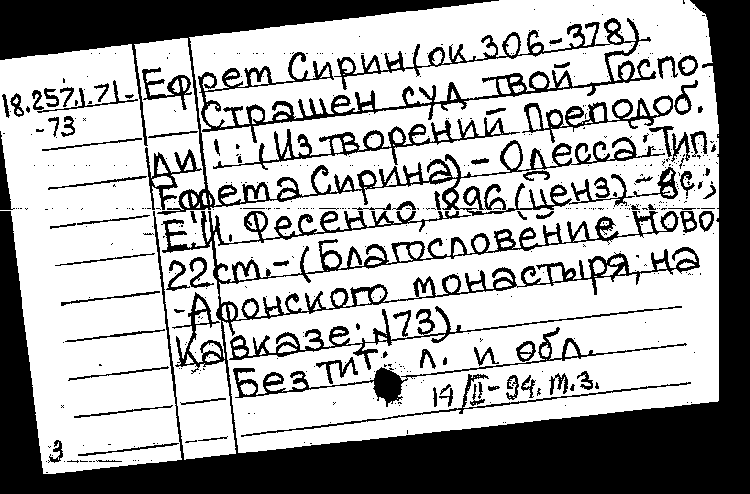 Ефрет Сирин (ок. 306-378).
18.257.1.71-
-73
Страшен суд твой, Госпо-
ди!: (Из творений Преподоб.
Ефрета Сирина).- Одесса: Тип.
Е.И. Фесенко, 1896 (ценз).- 8с.;
22см.- (Благословение Ново-
-Афонского монастыря, на
Кавказе; N73).
Без тит. л. и обл.
14/II-94. т.з.
3